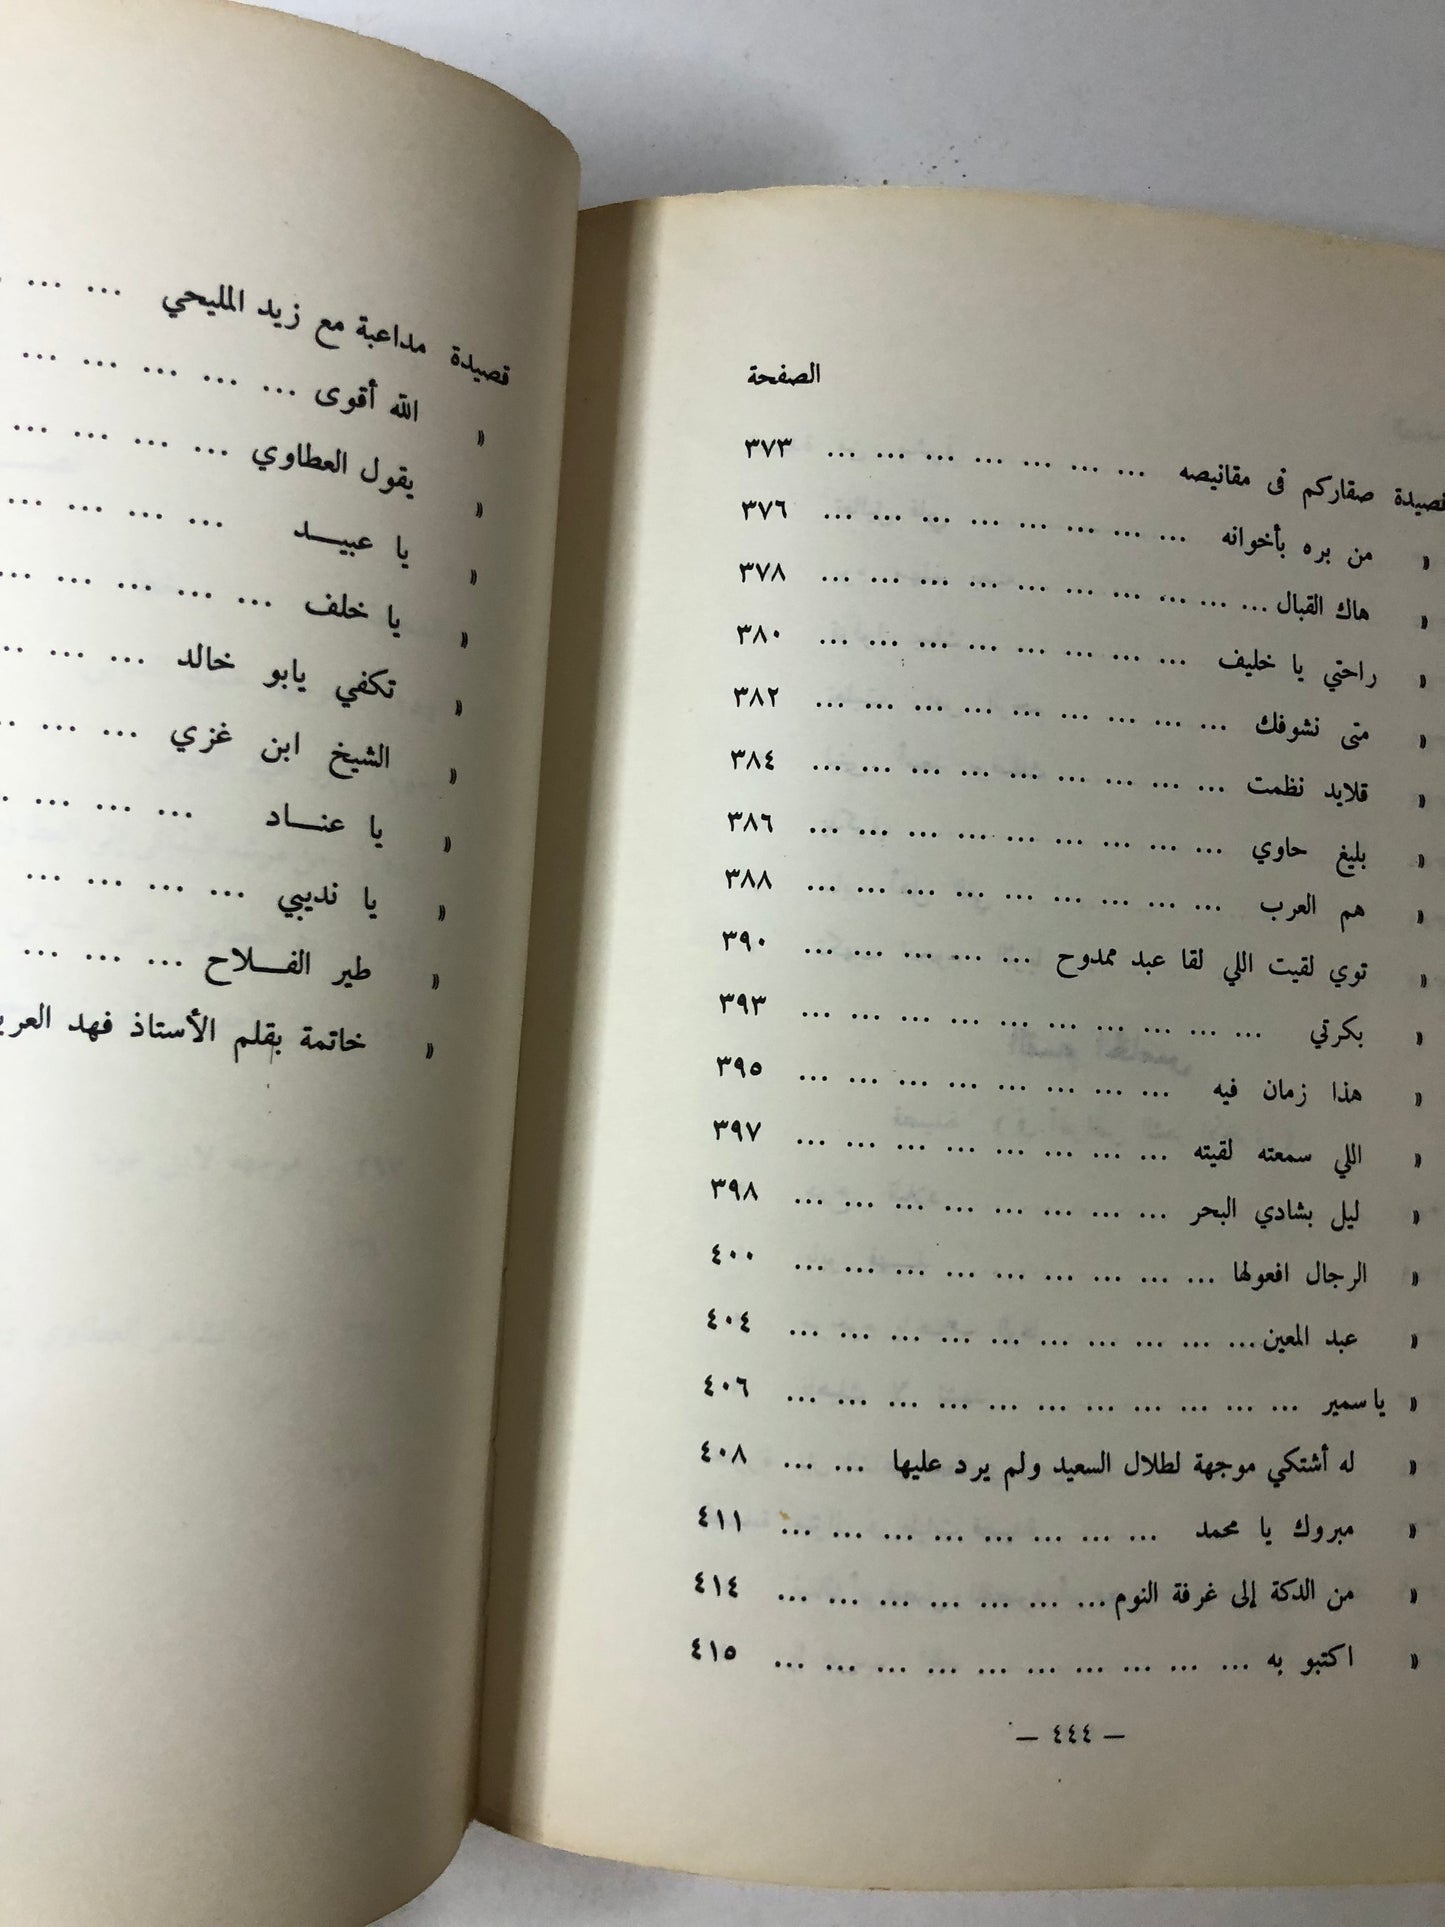 الصفحة
قصيدة صقاركم فى مقانيصه ... ... ... ... ... ... ... ٣٧٣
« من بره بأخوانه ... ... ... ... ... ... ... ... ٣٧٦
« هاك القبال ... ... ... ... ... ... ... ... ... ٣٧٨
« راحتي يا خليف ... ... ... ... ... ... ... ... ٣٨٠
« متى نشوفك ... ... ... ... ... ... ... ... ... ٣٨٢
« قلايد نظمت ... ... ... ... ... ... ... ... ... ٣٨٤
« بليغ حاوي ... ... ... ... ... ... ... ... ... ٣٨٦
« هم العرب ... ... ... ... ... ... ... ... ... ٣٨٨
« توي لقيت اللي لقا عبد ممدوح ... ... ... ... ... ٣٩٠
« بكرتي ... ... ... ... ... ... ... ... ... ... ٣٩٣
« هذا زمان فيه ... ... ... ... ... ... ... ... ٣٩٥
« اللي سمعته لقيته ... ... ... ... ... ... ... ... ٣٩٧
« ليل بشادي البحر ... ... ... ... ... ... ... ... ٣٩٨
« الرجال افعولها ... ... ... ... ... ... ... ... ... ٤٠٠
« عبد المعين ... ... ... ... ... ... ... ... ... ... ٤٠٤
« ياسمير ... ... ... ... ... ... ... ... ... ... ... ٤٠٦
« له أشتكي موجهة لطلال السعيد ولم يرد عليها ... ... ٤٠٨
« مبروك يا محمد ... ... ... ... ... ... ... ... ٤١١
« من الدكة إلى غرفة النوم ... ... ... ... ... ... ... ٤١٤
« اكتبو به ... ... ... ... ... ... ... ... ... ... ٤١٥
— ٤٤٤ —
قصيدة مداعبة مع زيد المليحي ... ...
« الله أقوى ... ... ... ... ...
« يقول العطاوي ... ... ... ...
« يا عبيـــد ... ... ... ...
« يا خلف ... ... ... ... ...
« تكفي يابو خالد ... ... ...
« الشيخ ابن غزي ... ... ...
« يا عنـــاد ... ... ... ...
« يا نديبي ... ... ... ...
« طير الفـــلاح ... ... ...
« خاتمة بقلم الأستاذ فهد